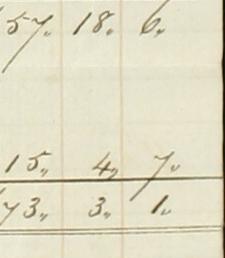 57„ 18„ 6„
15„ 4„ 7„
73„ 3„ 1„